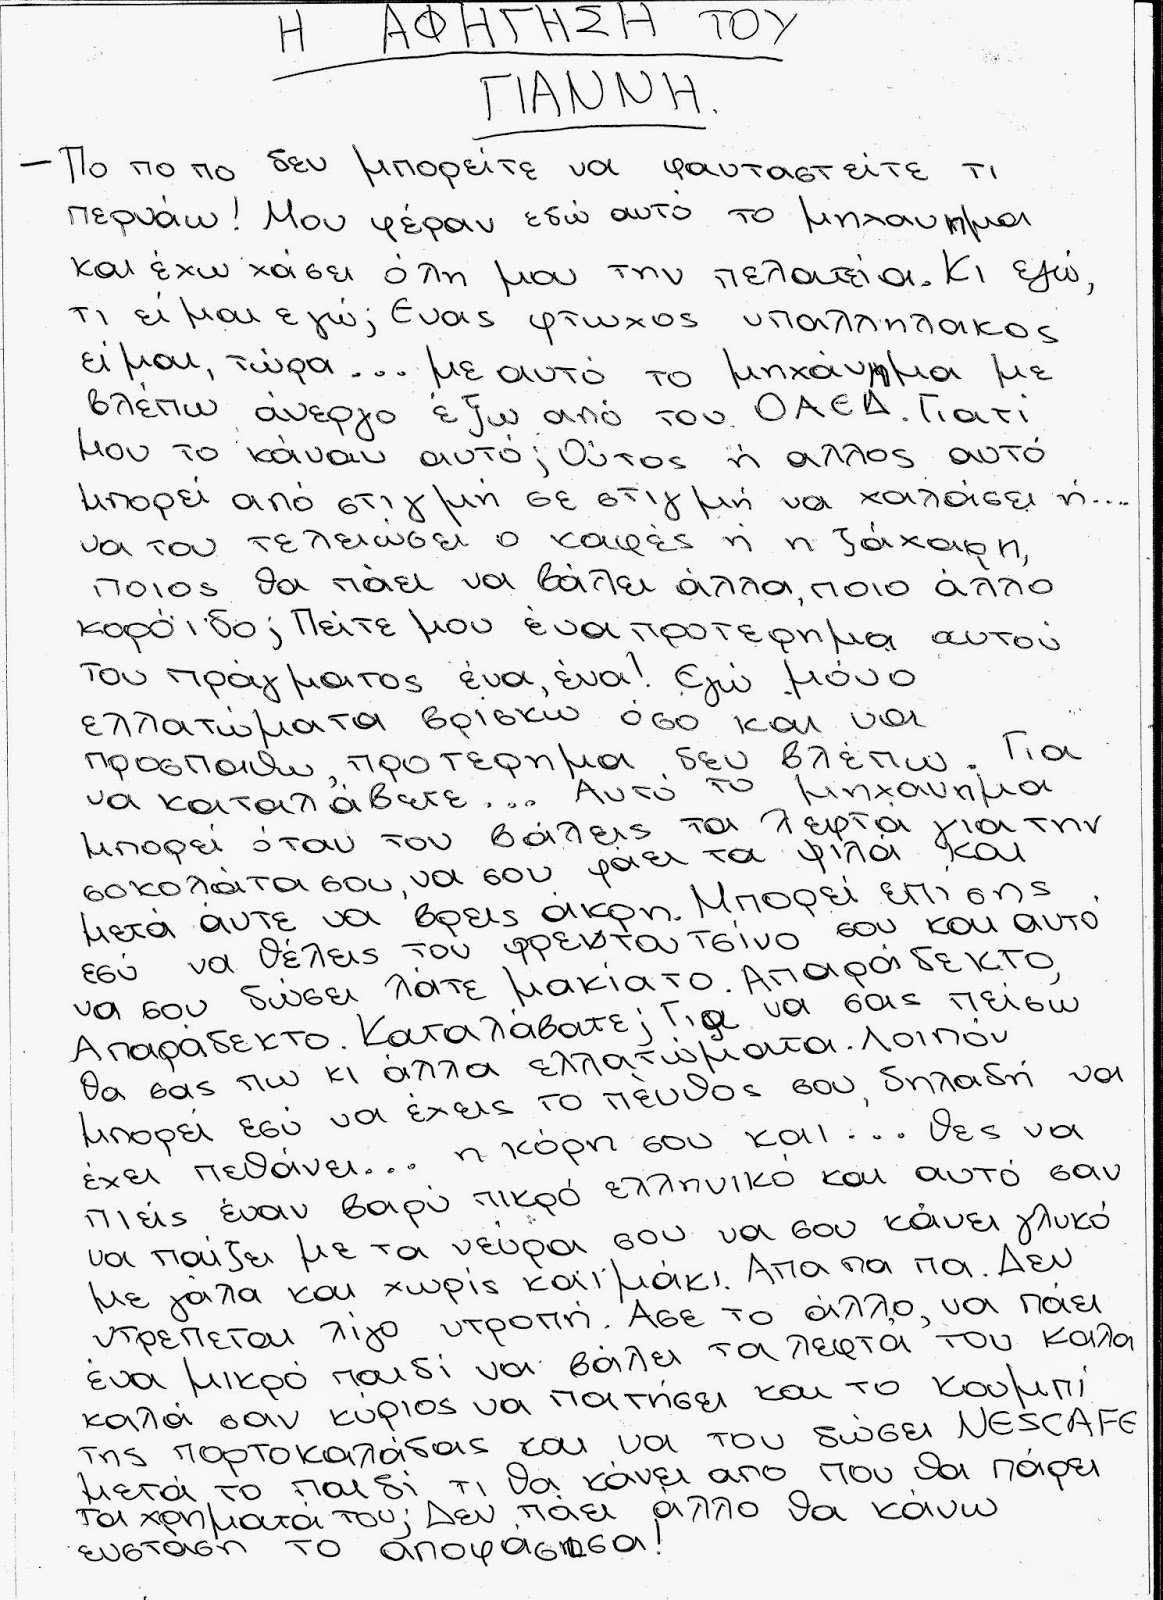 Η ΑΦΗΓΗΣΗ ΤΟΥ
ΓΙΑΝΝΗ.
– Πο πο πο δεν μπορείτε να φανταστείτε τι
περνάω! Μου φέραν εδώ αυτό το μηχανημα
και έχω χάσει όλη μου την πελατεία. Κι εγώ,
τι είμαι εγώ; Ενας φτωχος υπαλληλακος
είμαι, τώρα... με αυτό το μηχάνημα με
βλέπω άνεργο έξω από τον ΟΑΕΔ. Γιατί
μου το κάναν αυτό; Ούτος ή αλλος αυτό
μπορεί από στιγμή σε στιγμή να χαλάσει ή....
να του τελειώσει ο καφές ή η ζάχαρη,
ποιος θα πάει να βάλει άλλα, ποιο άλλο
κορόιδο; Πείτε μου ένα προτερημα αυτού
του πράγματος ένα, ένα! Εγώ μόνο
ελλατώματα βρίσκω όσο και να
προσπαθω, προτερημα δεν βλέπω. Για
να καταλάβετε... Αυτό το μηχανημα
μπορεί όταν του βάλεις τα λεφτά για την
σοκολάτα σου, να σου φάει τα ψιλά και
μετά άντε να βρεις άκρη. Μπορεί επισης
εσύ να θέλεις τον φρεντατσίνο σου και αυτό
να σου δώσει λάτε μακίατο. Απαράδεκτο,
Απαράδεκτο. Καταλάβατε; Για να σας πείσω
θα σας πω κι άλλα ελλατώματα. Λοιπόν
μπορεί εσύ να έχεις το πένθος σου, δηλαδή να
έχει πεθάνει... η κόρη σου και... θες να
πιείς έναν βαρύ πικρό ελληνικό και αυτό σαν
να παίζει με τα νεύρα σου να σου κάνει γλυκό
με γάλα και χωρίς καϊμάκι. Απα πα πα. Δεν
ντρεπεται λίγο ντροπή. Ασε το άλλο, να πάει
ένα μικρό παιδί να βάλει τα λεφτά του καλα
καλά σαν κύριος να πατήσει και το κουμπί
της πορτοκαλάδας και να του δώσει NESCAFE
μετά το παιδί τι θα κάνει απο που θα πάρει
τα χρηματά του; Δεν πάει άλλο θα κάνω
ενσταση το αποφάσισα!